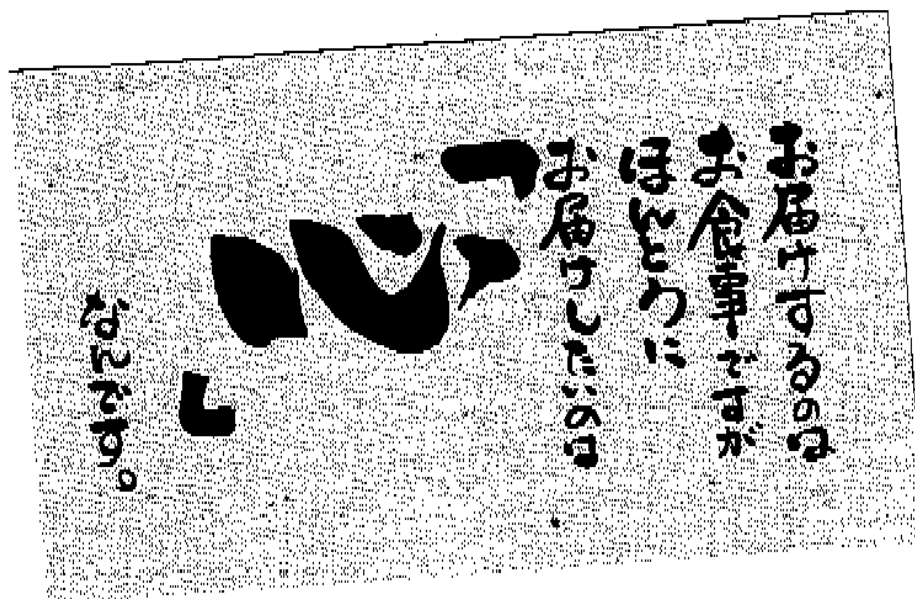 お届けするのは
お食事ですが
ほんとうに
お届けしたいのは
「心」
なんです。